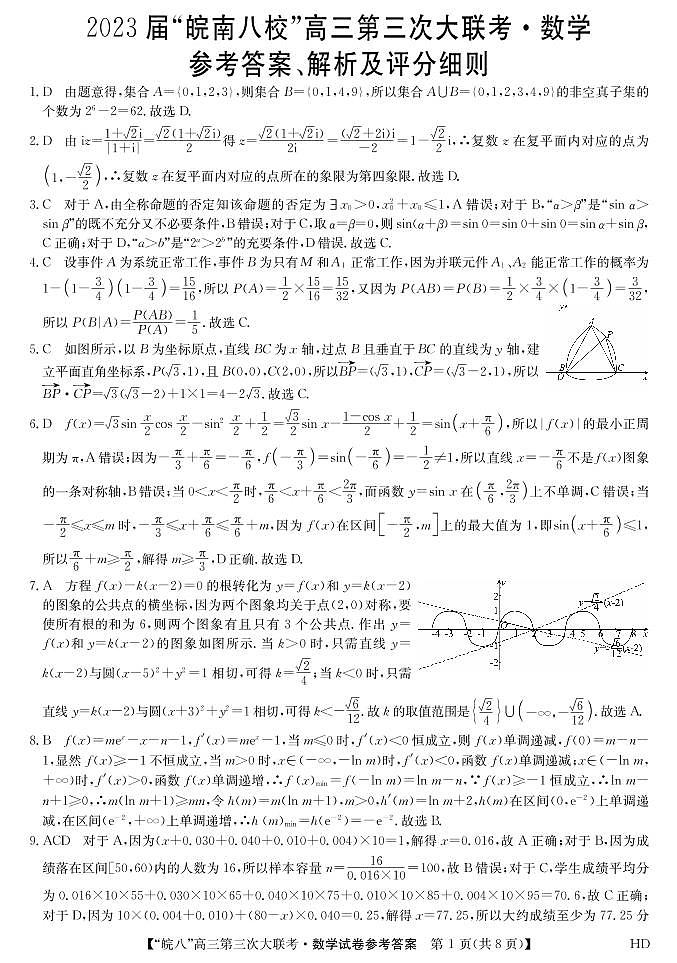 2023届“皖南八校”高三第三次大联考·数学
参考答案、解析及评分细则
1. D 由题意得,集合 A={0,1,2,3},则集合 B={0,1,4,9},所以集合 A∪B={0,1,2,3,4,9}的非空真子集的
个数为 2⁶-2=62. 故选 D.
2. D 由 iz=(1+√2i)/|1+i|=√2(1+√2i)/2 得 z=√2(1+√2i)/2i=(√2+2i)i/-2=1-(√2/2)i,∴复数 z 在复平面内对应的点为
(1,-√2/2),∴复数 z 在复平面内对应的点所在的象限为第四象限. 故选 D.
3. C 对于 A,由全称命题的否定知该命题的否定为∃x₀>0,x₀²+x₀≤1,A 错误;对于 B,“α>β”是“sin α>
sin β”的既不充分又不必要条件,B 错误;对于 C,取 α=β=0,则 sin(α+β)=sin 0=sin 0+sin 0=sin α+sin β,
C 正确;对于 D,“a>b”是“2ᵃ>2ᵇ”的充要条件,D 错误. 故选 C.
4. C 设事件 A 为系统正常工作,事件 B 为只有 M 和 A₁ 正常工作,因为并联元件 A₁、A₂ 能正常工作的概率为
1-(1-3/4)(1-3/4)=15/16,所以 P(A)=1/2×15/16=15/32,又因为 P(AB)=P(B)=1/2×3/4×(1-3/4)=3/32,
所以 P(B|A)=P(AB)/P(A)=1/5. 故选 C.
5. C 如图所示,以 B 为坐标原点,直线 BC 为 x 轴,过点 B 且垂直于 BC 的直线为 y 轴,建
立平面直角坐标系,P(√3,1),且 B(0,0),C(2,0),所以BP→=(√3,1),CP→=(√3-2,1),所以
BP→·CP→=√3(√3-2)+1×1=4-2√3. 故选 C.
6. D f(x)=√3sin x/2 cos x/2-sin² x/2+1/2=√3/2 sin x-(1-cos x)/2+1/2=sin(x+π/6),所以|f(x)|的最小正周
期为 π,A 错误;因为-π/3+π/6=-π/6,f(-π/3)=sin(-π/6)=-1/2≠1,所以直线 x=-π/6 不是 f(x)图象
的一条对称轴,B 错误;当 0<x<π/2 时,π/6<x+π/6<2π/3,而函数 y=sin x 在(π/6,2π/3)上不单调,C 错误;当
-π/2≤x≤m 时,-π/3≤x+π/6≤π/6+m,因为 f(x)在区间[-π/2,m]上的最大值为 1,即sin(x+π/6)≤1,
所以π/6+m≥π/2,解得 m≥π/3,D 正确. 故选 D.
7. A 方程 f(x)-k(x-2)=0 的根转化为 y=f(x)和 y=k(x-2)
的图象的公共点的横坐标,因为两个图象均关于点(2,0)对称,要
使所有根的和为 6,则两个图象有且只有 3 个公共点. 作出 y=
f(x)和 y=k(x-2)的图象如图所示. 当 k>0 时,只需直线 y=
k(x-2)与圆(x-5)²+y²=1 相切,可得 k=√2/4;当 k<0 时,只需
直线 y=k(x-2)与圆(x+3)²+y²=1 相切,可得 k<-√6/12. 故 k 的取值范围是{√2/4}∪(-∞,-√6/12). 故选 A.
8. B f(x)=meˣ-x-n-1,f′(x)=meˣ-1,当 m≤0 时,f′(x)<0 恒成立,则 f(x)单调递减,f(0)=m-n-
1,显然 f(x)≥-1 不恒成立,当 m>0 时,x∈(-∞,-ln m)时,f′(x)<0,函数 f(x)单调递减;x∈(-ln m,
+∞)时,f′(x)>0,函数 f(x)单调递增,∴f(x)min=f(-ln m)=ln m-n,∵f(x)≥-1 恒成立,∴ln m-
n+1≥0,∴m(ln m+1)≥mn,令 h(m)=m(ln m+1),m>0,h′(m)=ln m+2,h(m)在区间(0,e⁻²)上单调递
减,在区间(e⁻²,+∞)上单调递增,∴h(m)min=h(e⁻²)=-e⁻². 故选 B.
9. ACD 对于 A,因为(x+0.030+0.040+0.010+0.004)×10=1,解得 x=0.016,故 A 正确;对于 B,因为成
绩落在区间[50,60)内的人数为 16,所以样本容量 n=16/(0.016×10)=100,故 B 错误;对于 C,学生成绩平均分
为 0.016×10×55+0.030×10×65+0.040×10×75+0.010×10×85+0.004×10×95=70.6,故 C 正确;
对于 D,因为 10×(0.004+0.010)+(80-x)×0.040=0.25,解得 x=77.25,所以大约成绩至少为 77.25 分
【“皖八”高三第三次大联考·数学试卷参考答案 第 1 页(共 8 页)】 HD